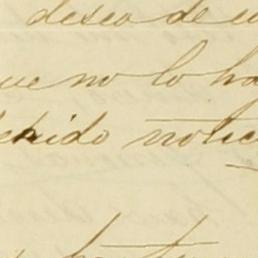 deseo de
que no lo ha
debido notic